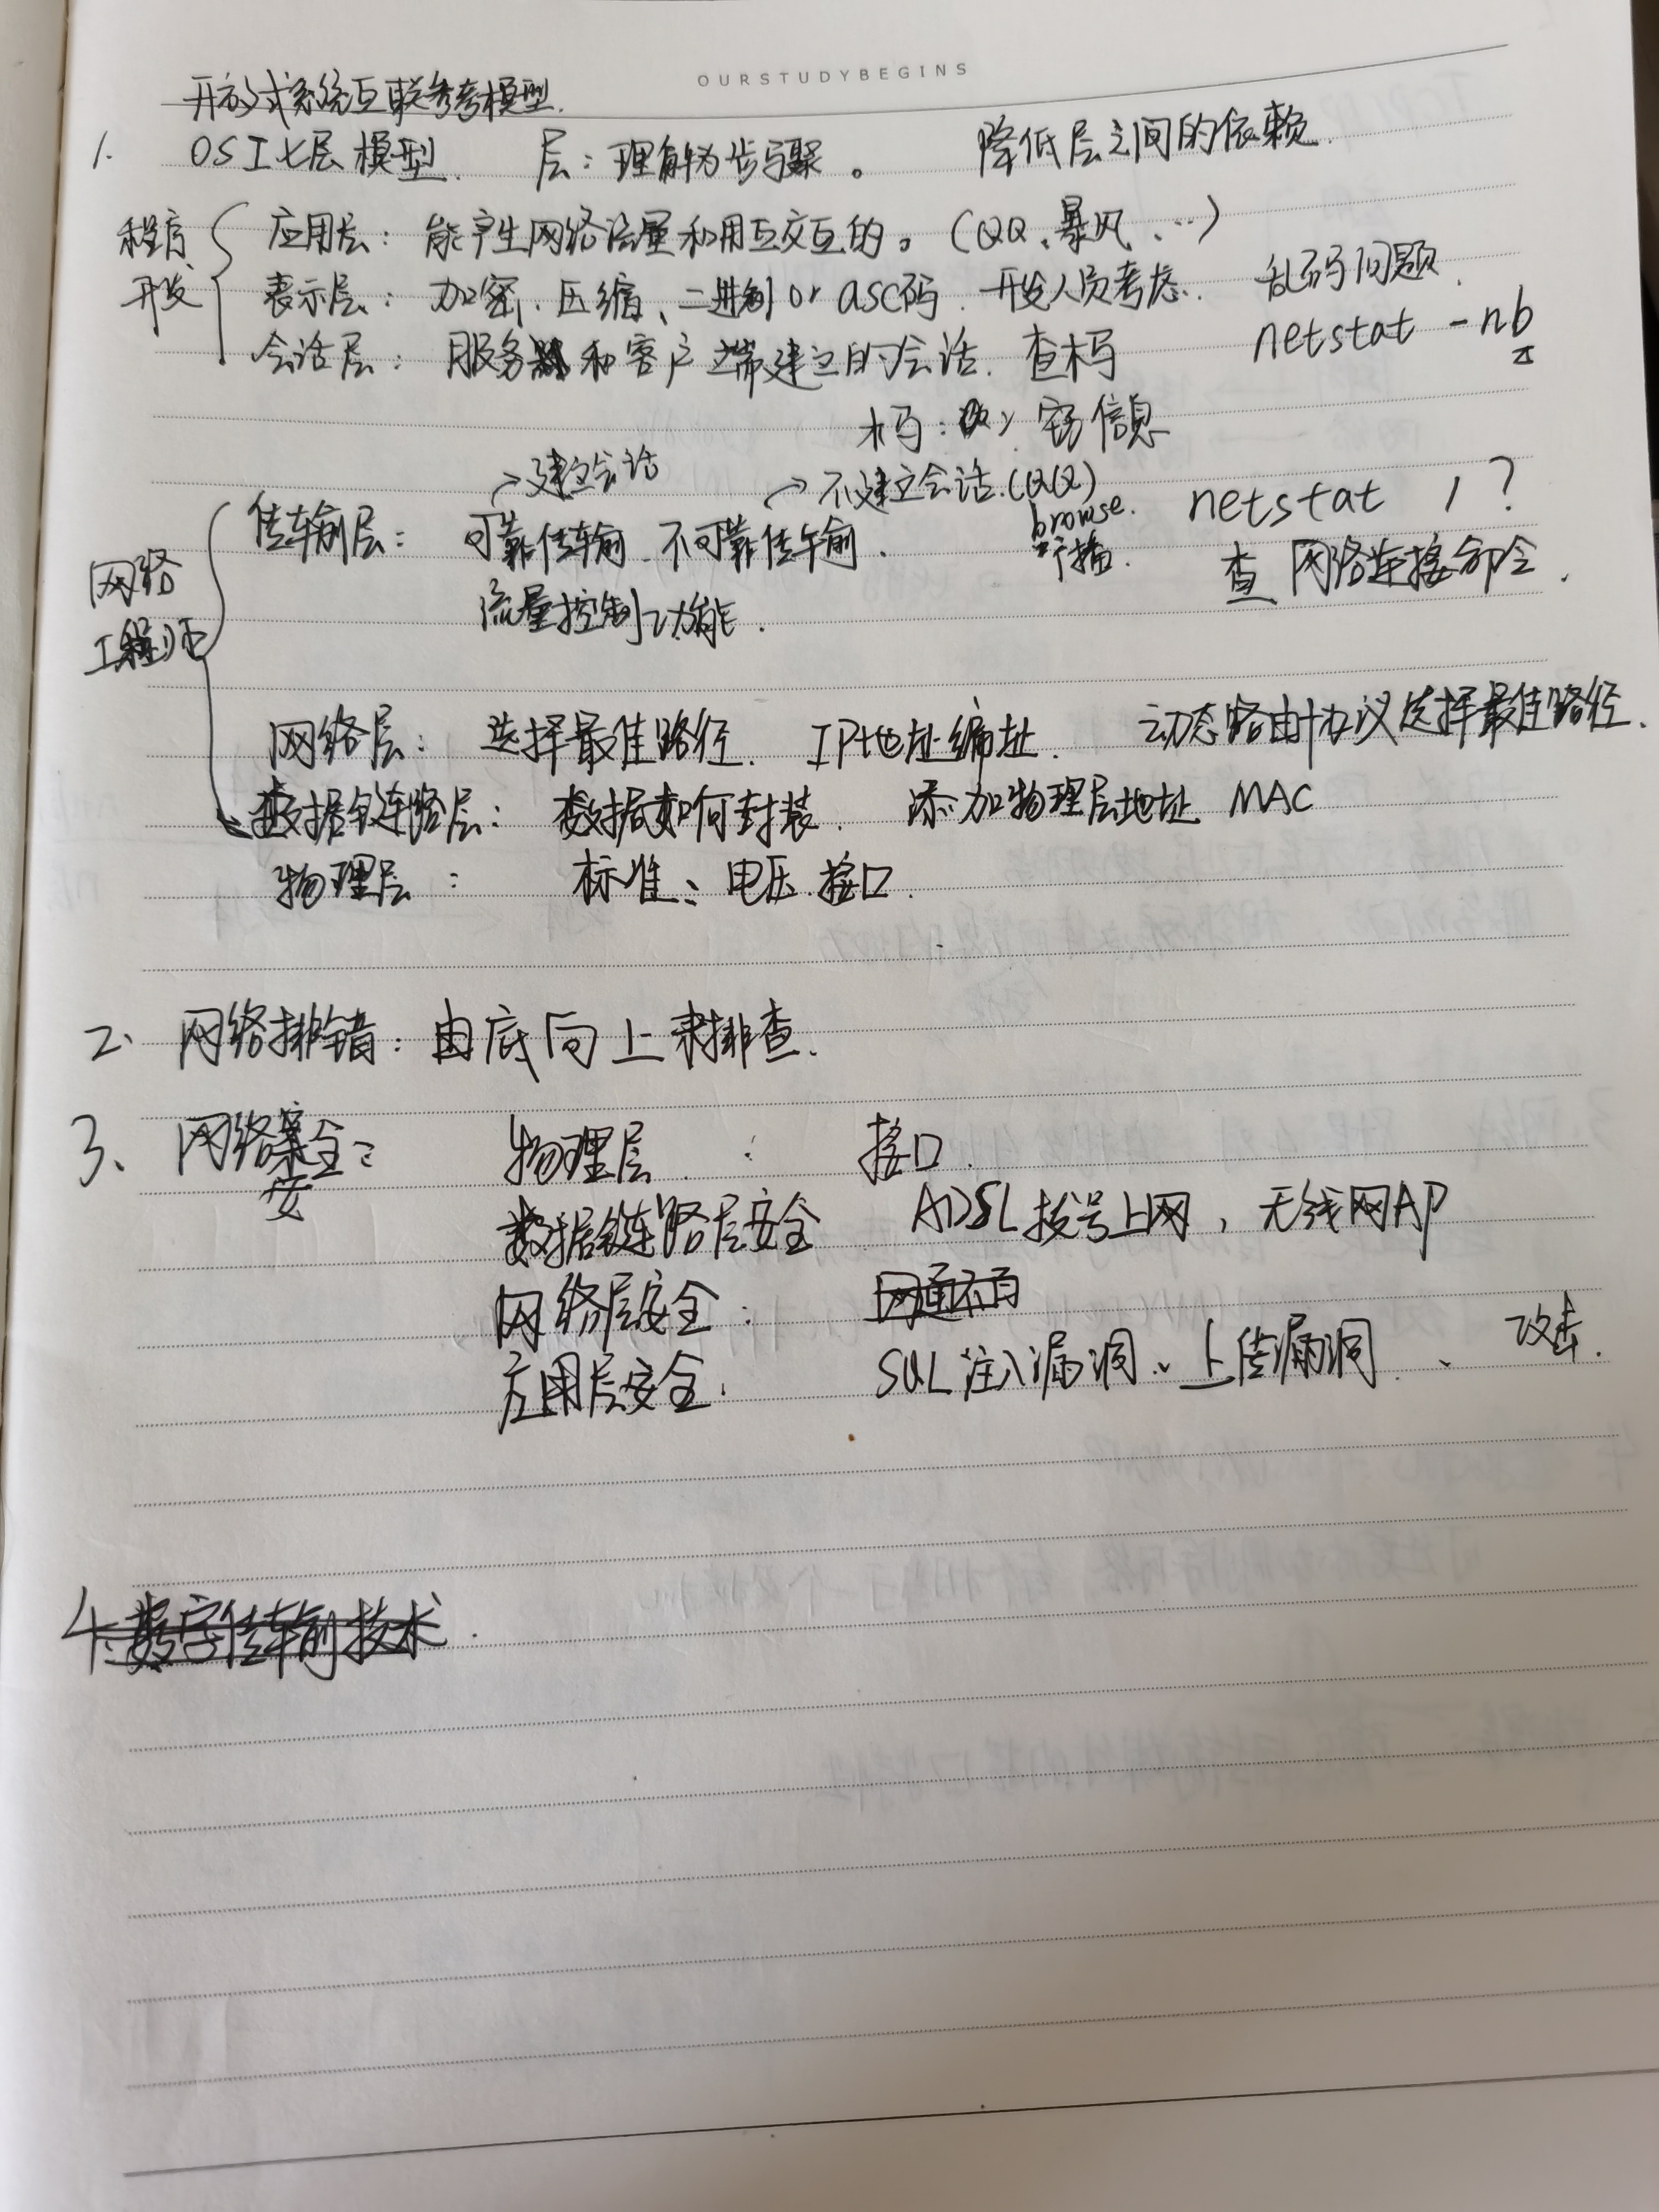 OURSTUDYBEGINS
开放式系统互联参考模型.
1. OSI七层模型. 层：理解为步骤。 降低层之间的依赖.
程序开发
应用层：能产生网络流量和用互交互的。（QQ、暴风、…）
表示层：加密、压缩、二进制 or asc码. 开发人员考虑. 乱码问题.
会话层：服务 和客户端建立的会话. 查木马 netstat -nb
木马： 窃信息
→建立会话 →不建立会话.(QQ)
传输层：可靠传输. 不可靠传输. browse. 广播. netstat /?
网络工程师
流量控制功能. 查网络连接命令.
网络层：选择最佳路径. IP地址编址. 动态路由协议选择最佳路径.
数据链路层：数据如何封装. 添加物理层地址 MAC
物理层：标准、电压.接口.
2、网络排错：由底向上来排查.
3、网络安全： 物理层： 接口.
数据链路层安全 ADSL拨号上网，无线网AP
网络层安全：
应用层安全. SQL注入漏洞、上传漏洞、攻击.
4.数字传输技术.